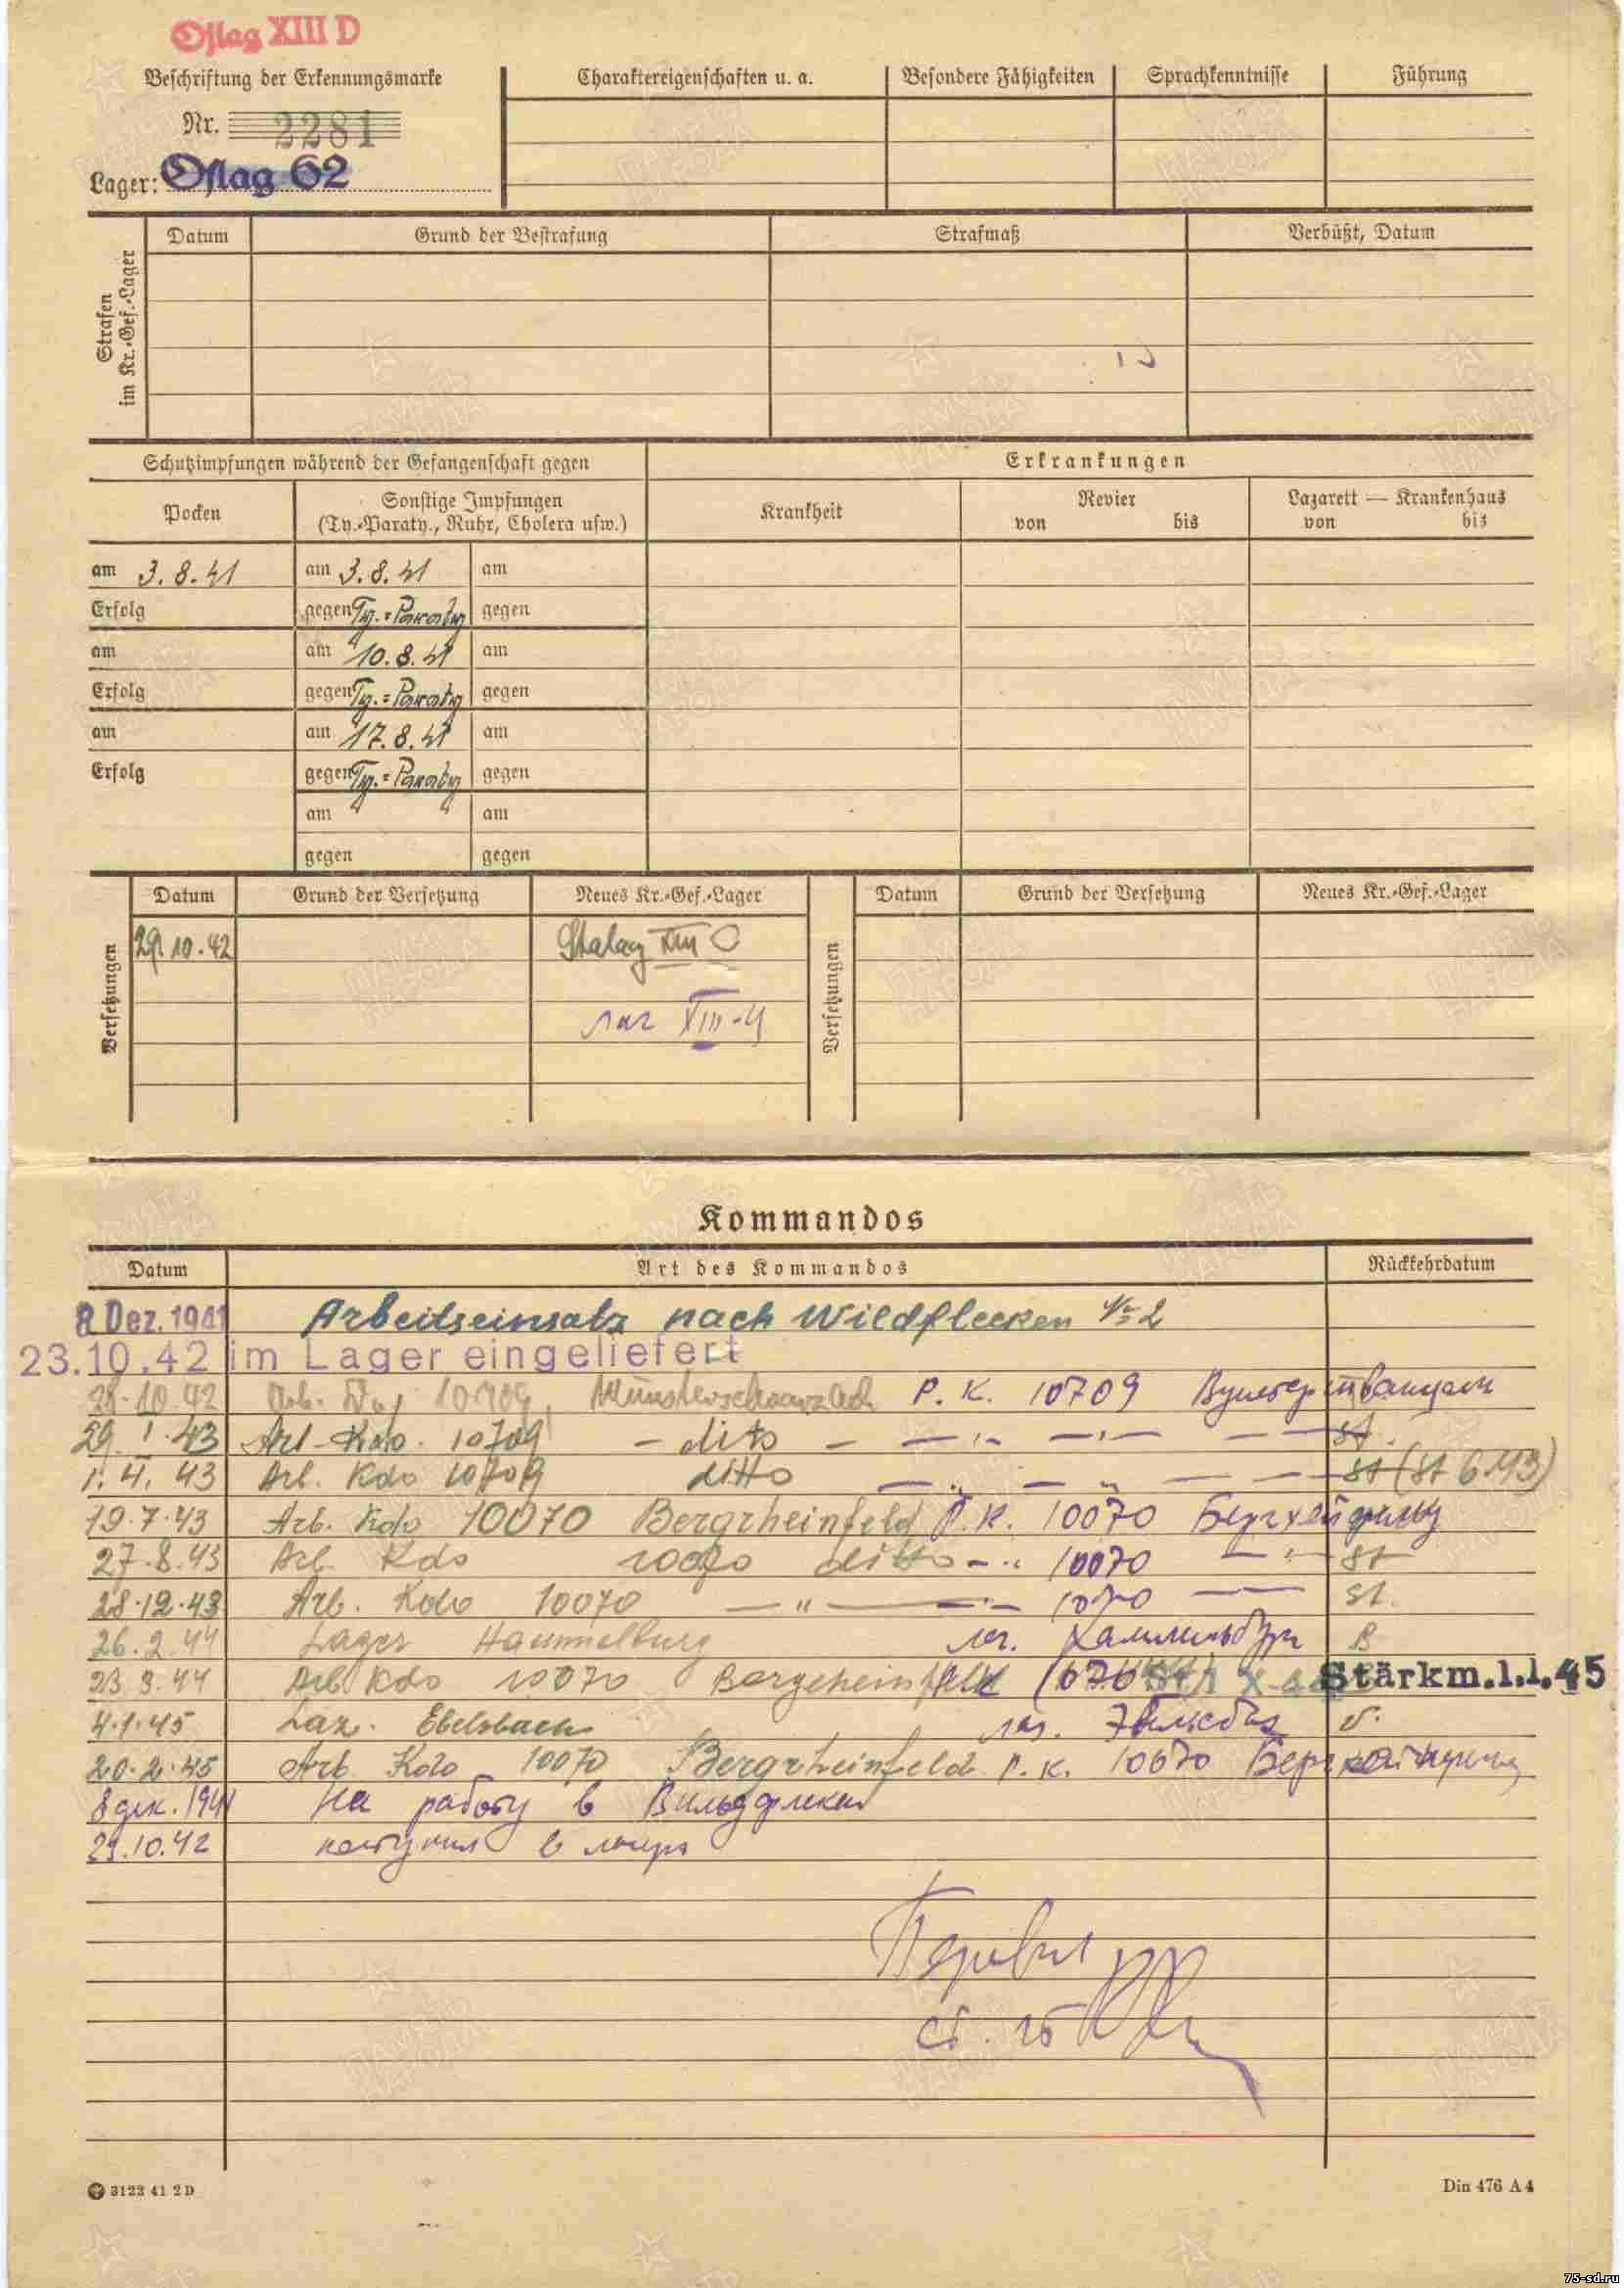 Oflag XIII D
Beschriftung der Erkennungsmarke
Nr. 2281
Lager: Oflag 62
Charaktereigenschaften u. a. Besondere Fähigkeiten Sprachkenntnisse Führung
Strafen im Kr.-Gef.-Lager
Datum Grund der Bestrafung Strafmaß Verbüßt, Datum
Schutzimpfungen während der Gefangenschaft gegen Erkrankungen
Pocken Sonstige Impfungen (Ty.-Paraty., Ruhr, Cholera usw.) Krankheit Revier von bis Lazarett — Krankenhaus von bis
am 3.8.41 am 3.8.41 am
Erfolg gegen Ty.-Paraty gegen
am am 10.8.41 am
Erfolg gegen Ty.-Paraty gegen
am am 17.8.41 am
Erfolg gegen Ty.-Paraty gegen
am am
gegen gegen
Versetzungen Datum Grund der Versetzung Neues Kr.-Gef.-Lager Versetzungen Datum Grund der Versetzung Neues Kr.-Gef.-Lager
29.10.42 Stalag XIII C
лаг XIII-Ц
Kommandos
Datum Art des Kommandos Rückkehrdatum
8 Dez. 1941 Arbeitseinsatz nach Wildflecken № 2
23.10.42 im Lager eingeliefert
29.10.42 10709, Münsterschwarzach Р. К. 10709
29. I. 43 Arb-Kdo. 10709 - dito - st.
1. 4. 43 Arb. Kdo 10709 ditto st (St 6 M3)
19.7.43 Arb. Kdo 10070 Bergrheinfeld Р. К. 10070
27.8.43 Arb Kdo 10070 ditto - " 10070 - " - st
28.12.43 Arb. Kdo 10070 — " — 1070 — st.
26.2.44 Lager Hammelburg лаг. Хаммельбург B
23.3.44 Arb Kdo 10070 Bergrheinfeld Stärkm.1.1.45
4.1.45 Laz. Ebelsbach лаз. Эбельсбах v.
20.2.45 Arb Kdo 10070 Bergrheinfeld Р. К. 10070
8 дек. 1941 На работу в Вильдфлекен
23.10.42 поступил в лагерь
Перевел
ст. л-т
3122 41 2 D
Din 476 A 4
75-sd.ru